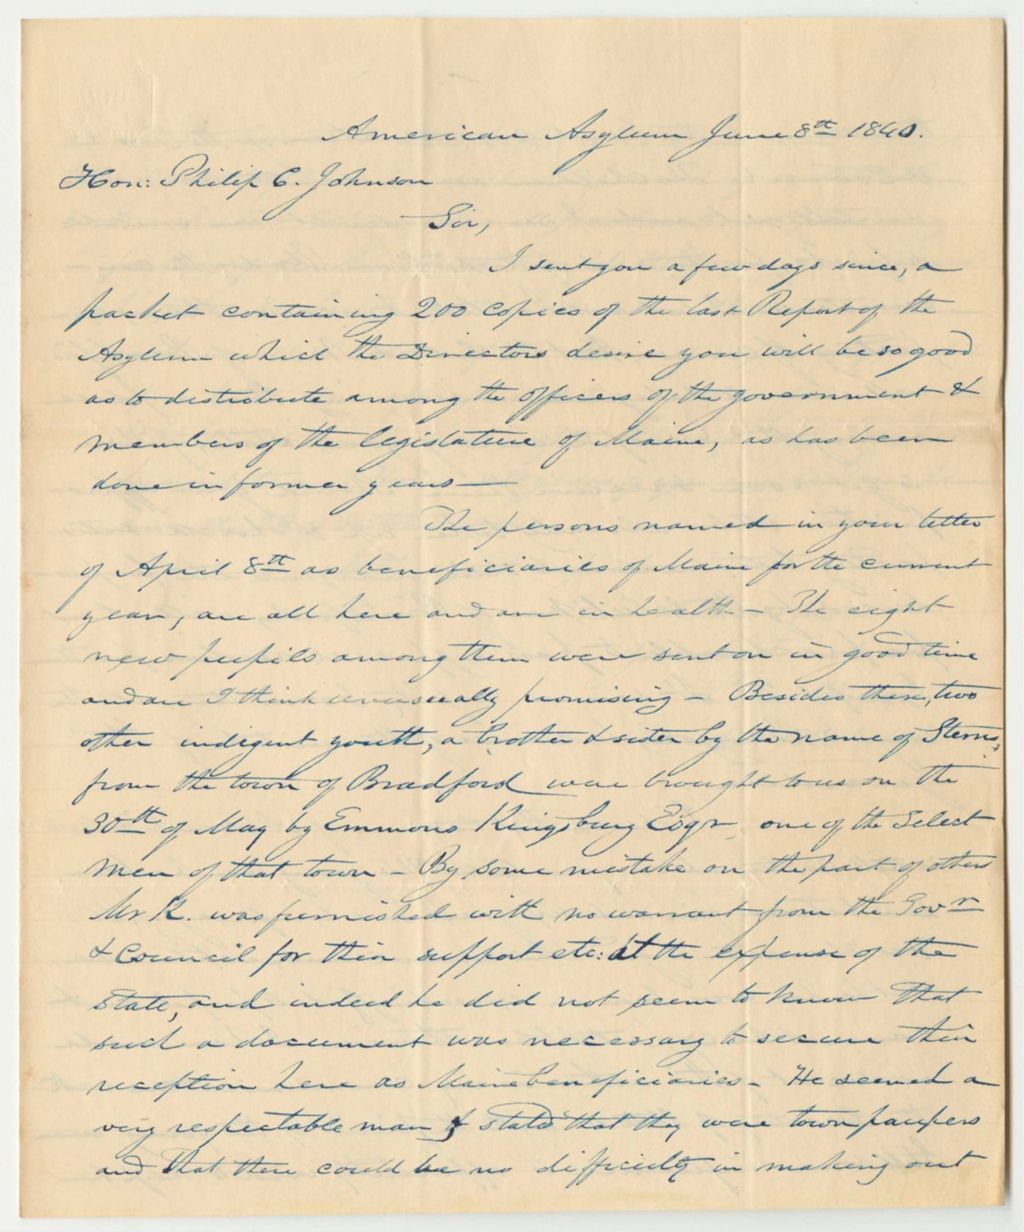 American Asylum June 8th 1840.
Hon: Philip C. Johnson
Sir,
I sent you a few days since, a
packet containing 200 copies of the last Report of the
Asylum which the Directors desire you will be so good
as to distribute among the officers of the government &
members of the legislature of Maine, as has been
done in former years—
The persons named in your letter
of April 8th as beneficiaries of Maine for the current
year, are all here and are in health – The eight
new pupils among them were sent on in good time
and are I think unusually promising – Besides these, two
other indigent youth, a brother & sister by the name of Sterns,
from the town of Bradford were brought to us on the
30th of May by Emmons Kingsbury Esqr. one of the Select
men of that town – By some mistake on the part of others
Mr K. was furnished with no warrant from the Govr
& Council for their support etc: at the expense of the
State, and indeed he did not seem to know that
such a document was necessary to secure their
reception here as Maine beneficiaries – He seemed a
very respectable man & stated that they were town paupers
and that there could be no difficulty in making out